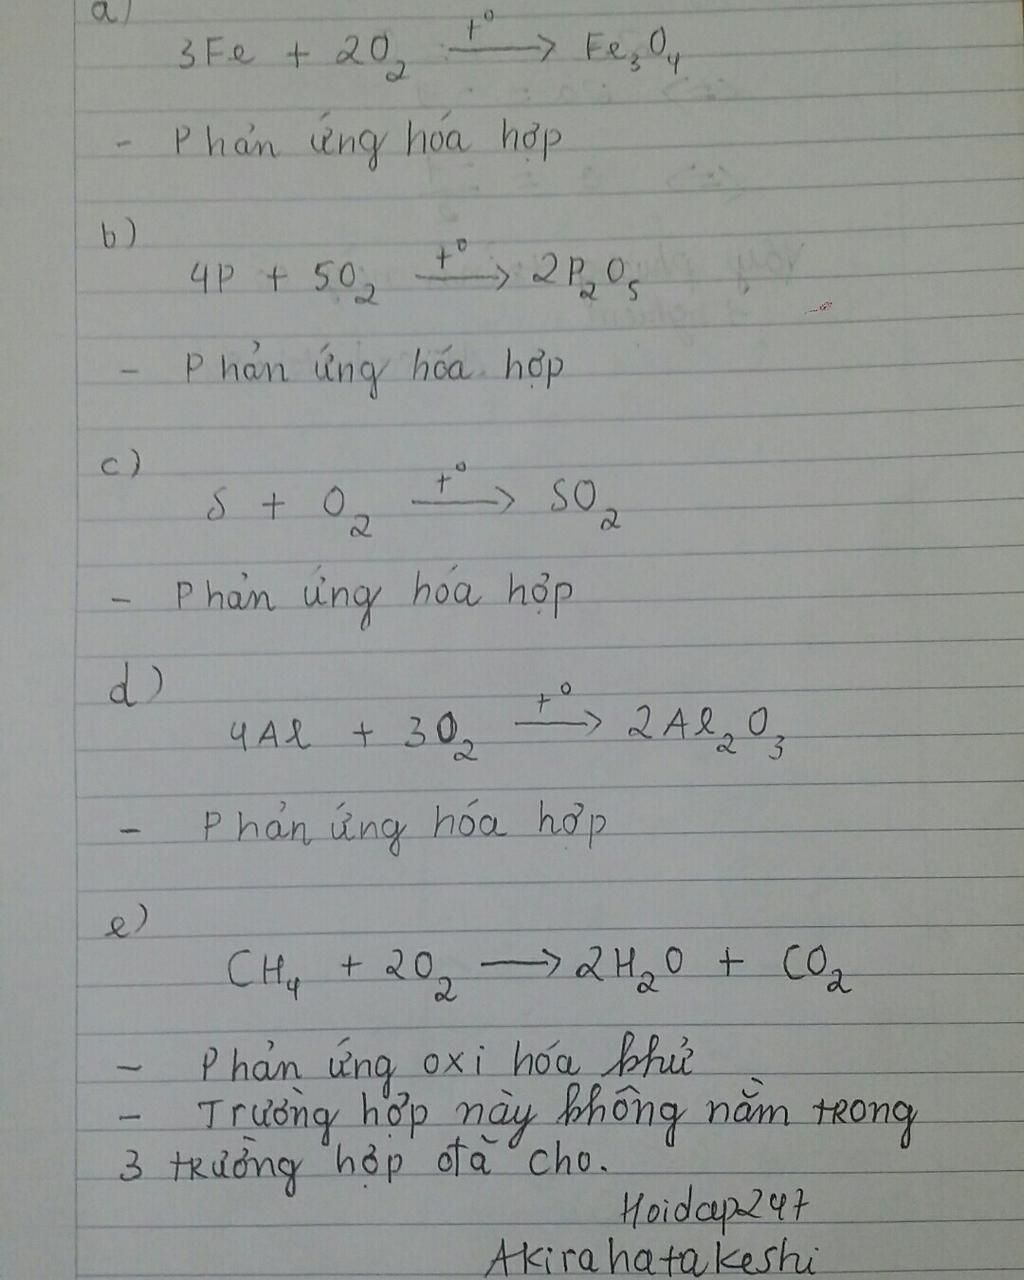 a)
3Fe + 2O₂ —t°→ Fe₃O₄
- Phản ứng hóa hợp
b)
4P + 5O₂ —t°→ 2P₂O₅
- Phản ứng hóa hợp
c)
S + O₂ —t°→ SO₂
- Phản ứng hóa hợp
d)
4Al + 3O₂ —t°→ 2Al₂O₃
- Phản ứng hóa hợp
e)
CH₄ + 2O₂ → 2H₂O + CO₂
- Phản ứng oxi hóa khử
- Trường hợp này không nằm trong
3 trường hợp đã cho.
Hoidap247
Akirahatakeshi